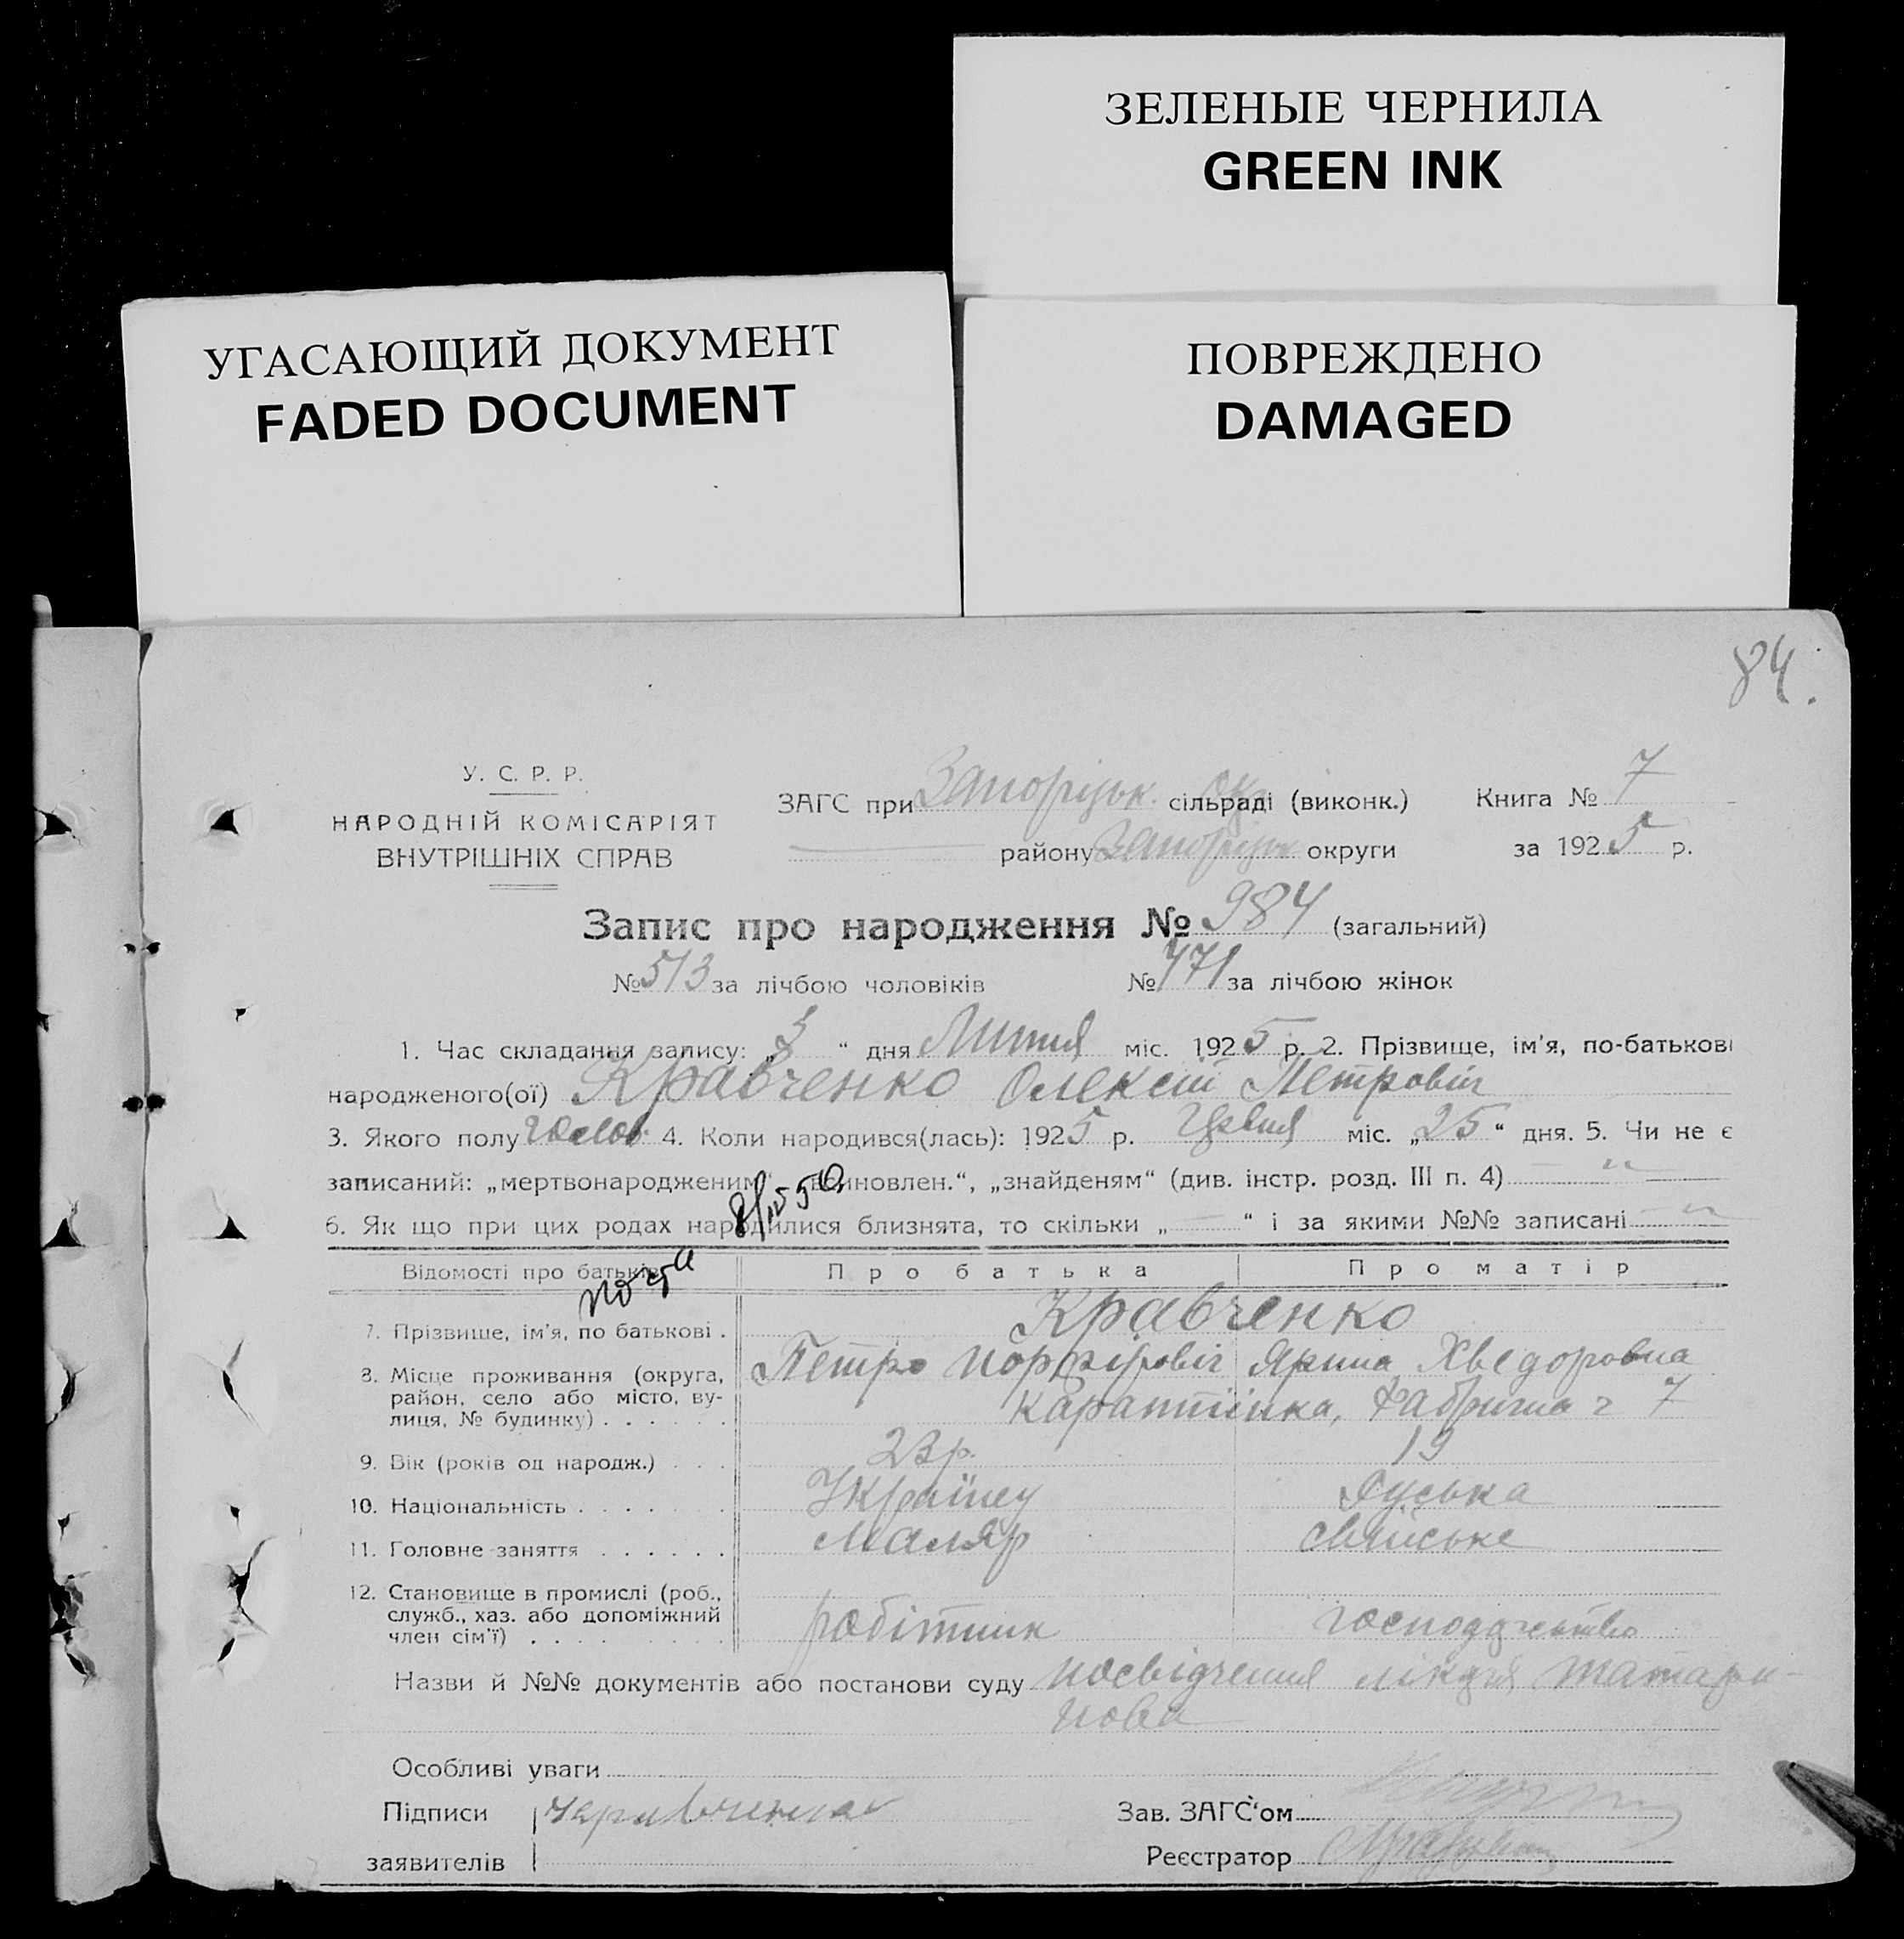 ЗЕЛЕНЫЕ ЧЕРНИЛА
GREEN INK
УГАСАЮЩИЙ ДОКУМЕНТ
FADED DOCUMENT
ПОВРЕЖДЕНО
DAMAGED
84.
У. С. Р. Р.
НАРОДНІЙ КОМІСАРІЯТ
ВНУТРІШНІХ СПРАВ
ЗАГС при Запоріцьк. Окр сільраді (виконк.) Книга № 7
району Запоріцьк округи за 1925 р.
Запис про народження № 984 (загальний)
№ 513 за лічбою чоловіків № 471 за лічбою жінок
1. Час складання запису: „3“ дня Липня міс. 1925 р. 2. Прізвище, ім’я, по-батькові
народженого(ої) Кравченко Олексій Петровіч
3. Якого полу чолов. 4. Коли народився(лась): 1925 р. Червня міс. „25“ дня. 5. Чи не є
записаний: „мертвонародженим“, „всиновлен.“, „знайденям“ (див. інстр. розд. III п. 4) — „ —
6. Як що при цих родах народилися близнята, то скільки „—“ і за якими №№ записані — „
Відомості про батьків
Про батька
Про матір
7. Прізвище, ім’я, по батькові .
Кравченко
Петро Порфіровіч
Ярина Хведоровна
8. Місце проживання (округа,
район, село або місто, ву-
лиця, № будинку) . . . . . .
Карантінка, Фабрична ч 7
9. Вік (років од народж.) . . .
23 р.
19
10. Національність . . . . . .
Українец
Руська
11. Головне заняття . . . . . .
Маляр
хатське
12. Становище в промислі (роб.,
служб., хаз. або допоміжний
член сім’ї) . . . . . . . .
робітник
господарство
Назви й №№ документів або постанови суду посвідчення лікаря Татари-
нова
Особливі уваги
Підписи
заявителів
Зав. ЗАГС‘ом
Реєстратор